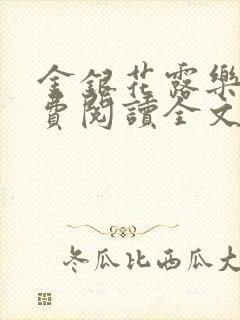 金銀花露樂
費閱讀全文
冬瓜比西瓜大